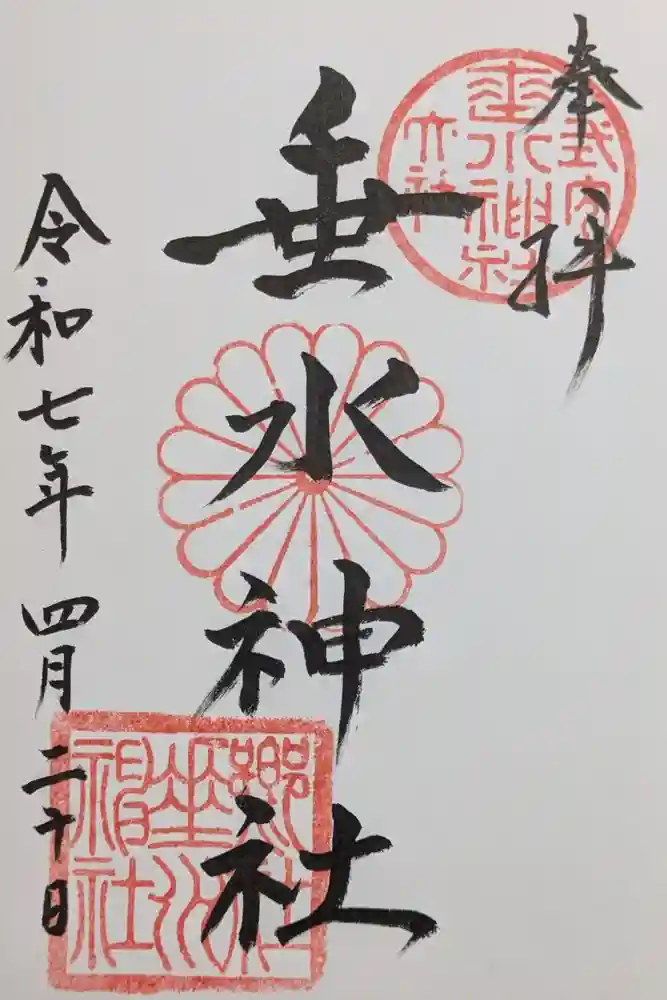 奉拝
式内
垂水神社
大社
垂水神社
鄕社
垂水
神社
令和七年四月二十日